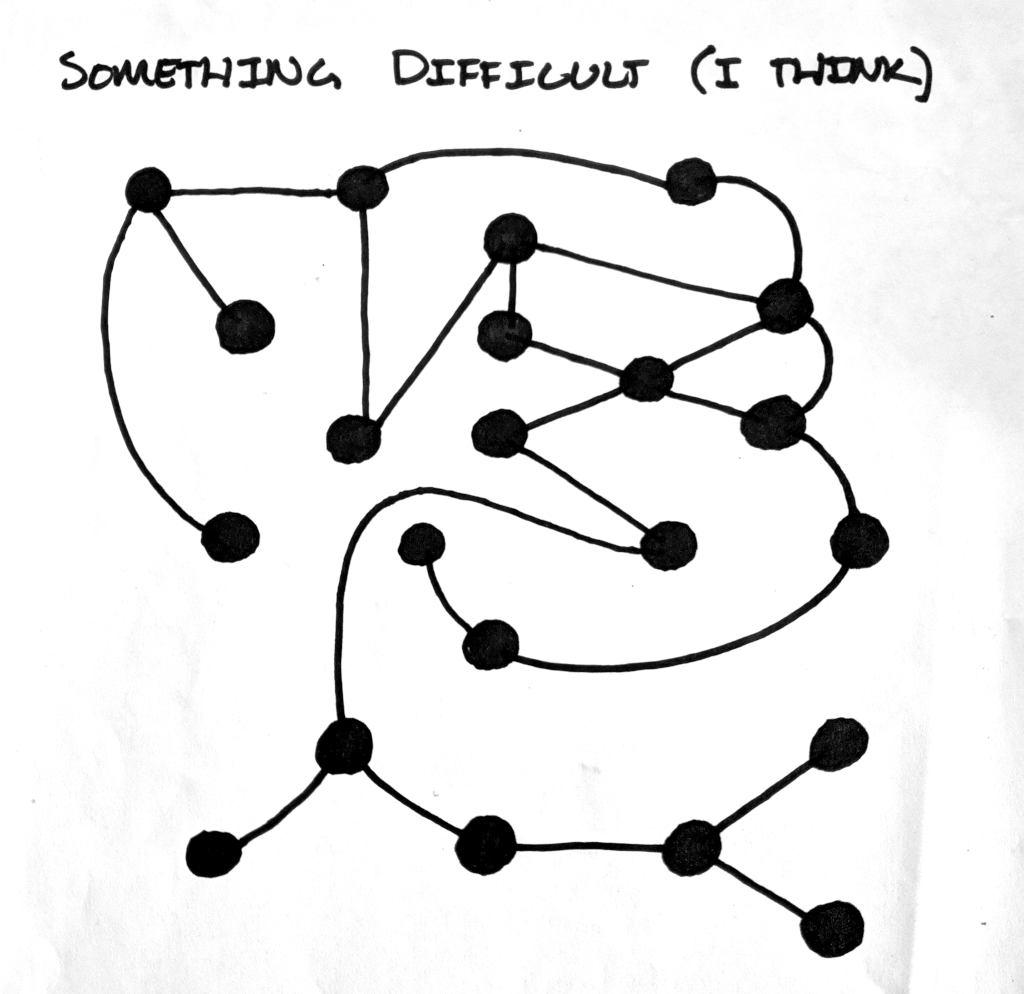 SOMETHING DIFFICULT (I THINK)